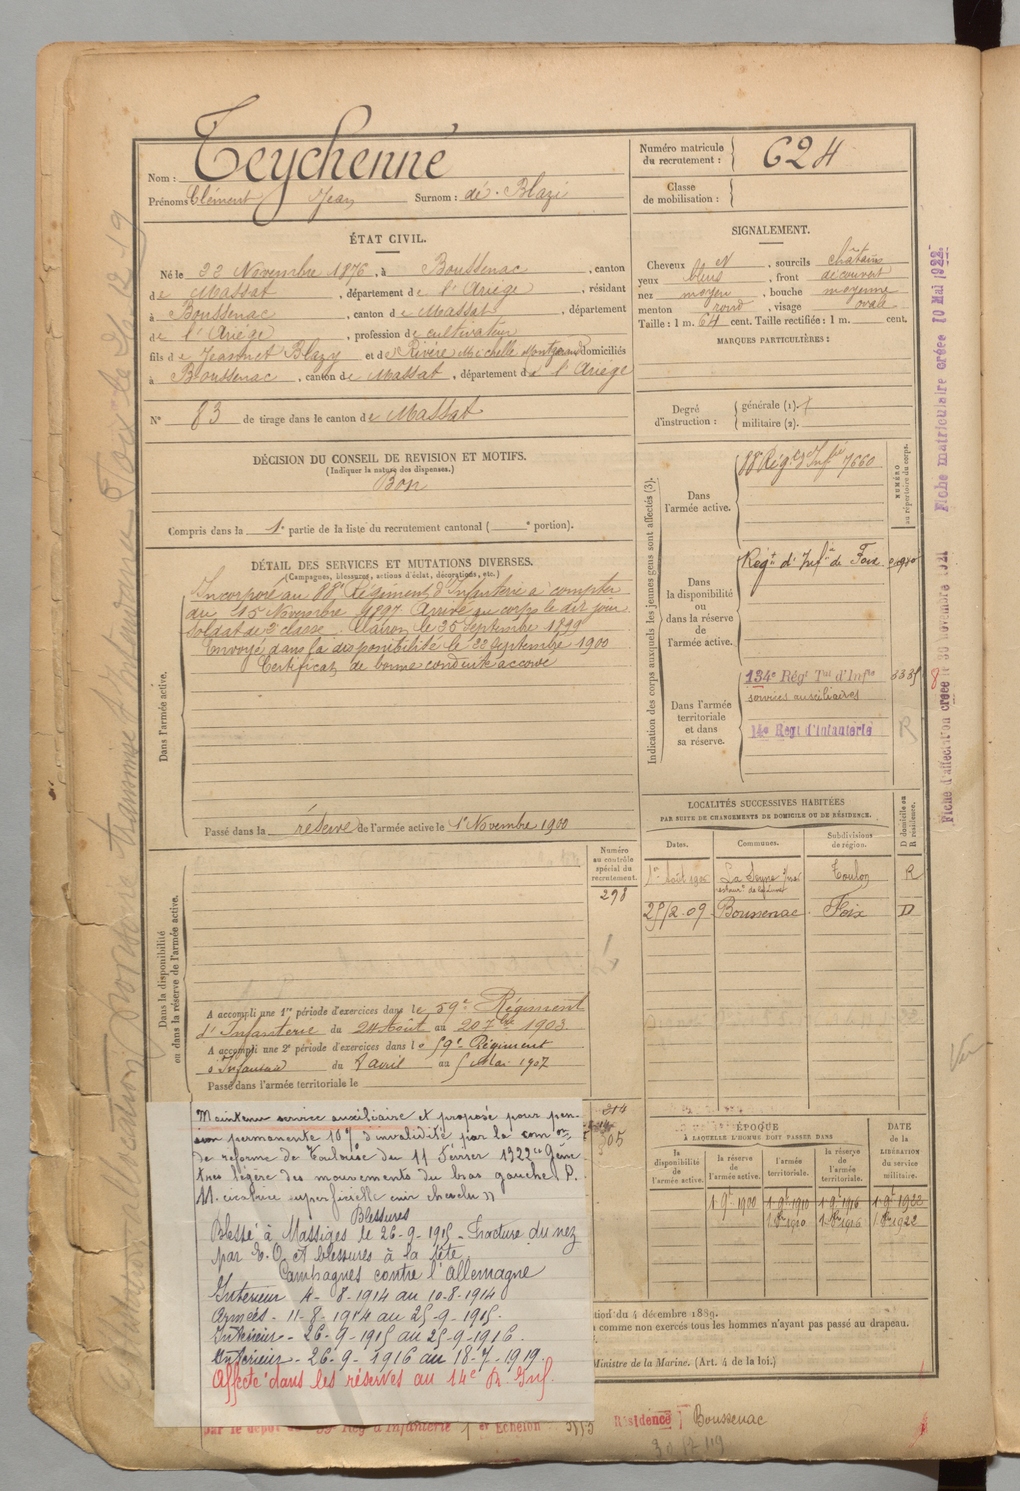 Nom : Teychenné
Prénoms Clément Jean Surnom : dé. Blazi
Numéro matricule
du recrutement : 624
Classe
de mobilisation :
ÉTAT CIVIL.
Né le 22 Novembre 1876, à Boussenac, canton
de Massat, département de l'Ariège, résidant
à Boussenac, canton de Massat, département
de l'Ariége, profession de cultivateur
fils de Jeannet Blazy et de Rivère domiciliés
à Boussenac, canton de Massat, département de l'Ariége
N° 83 de tirage dans le canton de Massat
DÉCISION DU CONSEIL DE REVISION ET MOTIFS.
(Indiquer la nature des dispenses.)
Bon
Compris dans la 1e partie de la liste du recrutement cantonal ( e portion).
SIGNALEMENT.
Cheveux N, sourcils châtains
yeux bleus, front découvert
nez moyen, bouche moyenne
menton rond, visage ovale
Taille : 1 m. 64 cent. Taille rectifiée : 1 m. cent.
MARQUES PARTICULIÈRES :
Degré
d'instruction :
générale (1).
militaire (2).
DÉTAIL DES SERVICES ET MUTATIONS DIVERSES.
(Campagnes, blessures, actions d'éclat, décorations, etc.)
Dans l'armée active.
Incorporé au 88e Régiment d'Infanterie à compter
du 15 Novembre 1897 Arrivé au corps le dit jour
soldat de 2e classe. Clairon le 25 septembre 1899
Envoyé dans la disponibilité le 22 septembre 1900
Certificat de bonne conduite accordé
Passé dans la réserve de l'armée active le 1er Novembre 1900
Indication des corps auxquels les jeunes gens sont affectés (3).
NUMÉRO
au répertoire du corps.
Dans
l'armée active.
88e Rég. d'Infie 7660
Dans
la disponibilité
ou
dans la réserve
de
l'armée active.
Régt d'Infie de Foix
Dans l'armée
territoriale
et dans
sa réserve.
134e Régt Tal d'Infie
services auxiliaires
14e Régt d'Infanterie
R
LOCALITÉS SUCCESSIVES HABITÉES
PAR SUITE DE CHANGEMENTS DE DOMICILE OU DE RÉSIDENCE.
Dates. Communes. Subdivisions de région. D domicile ou R résidence.
La Seyne Toulon R
25/2.09 Boussenac Foix D
Dans la disponibilité
ou dans la réserve de l'armée active.
Numéro
au contrôle
spécial du
recrutement.
298
A accompli une 1re période d'exercices dans le 59e Régiment
d'Infanterie du 24 Août au 20 7bre 1903
A accompli une 2e période d'exercices dans le 59e Régiment
d'Infanterie du 8 avril au 5 Mai 1907
Passé dans l'armée territoriale le
Maintenu service auxiliaire et proposé pour pen-
sion permanente 10% d'invalidité par la comon
de réforme de Toulouse du 11 Février 1922 "Gêne
très légère des mouvements du bras gauche P.
M. cicatrice superficielle cuir chevelu"
Blessures
Blessé à Massiges le 26-9-1915 - Fracture du nez
par E.O. et blessures à la tête.
Campagnes contre l'Allemagne
Intérieur 4-8-1914 au 10-8-1914
Armées - 11-8-1914 au 25-9-1915.
Intérieur - 26-9-1915 au 25-9-1916.
Intérieur - 26-9-1916 au 18-7-1919.
Affecté dans les réserves au 14e R. Inf.
ÉPOQUE
À LAQUELLE L'HOMME DOIT PASSER DANS
DATE
de la
LIBÉRATION
du service
militaire.
la disponibilité de l'armée active. la réserve de l'armée active. l'armée territoriale. la réserve de l'armée territoriale.
1 9bre 1900 1 9bre 1910 1 9bre 1916 1 9bre 1922
1 8bre 1910 1 8bre 1916 1 8bre 1922
tion du 4 décembre 1889.
comme non exercés tous les hommes n'ayant pas passé au drapeau.
Ministre de la Marine. (Art. 4 de la loi.)
Résidence Boussenac
Fiche d'affectation créée le 30 novembre 1921
Fiche matriculaire créée 10 Mai 1922